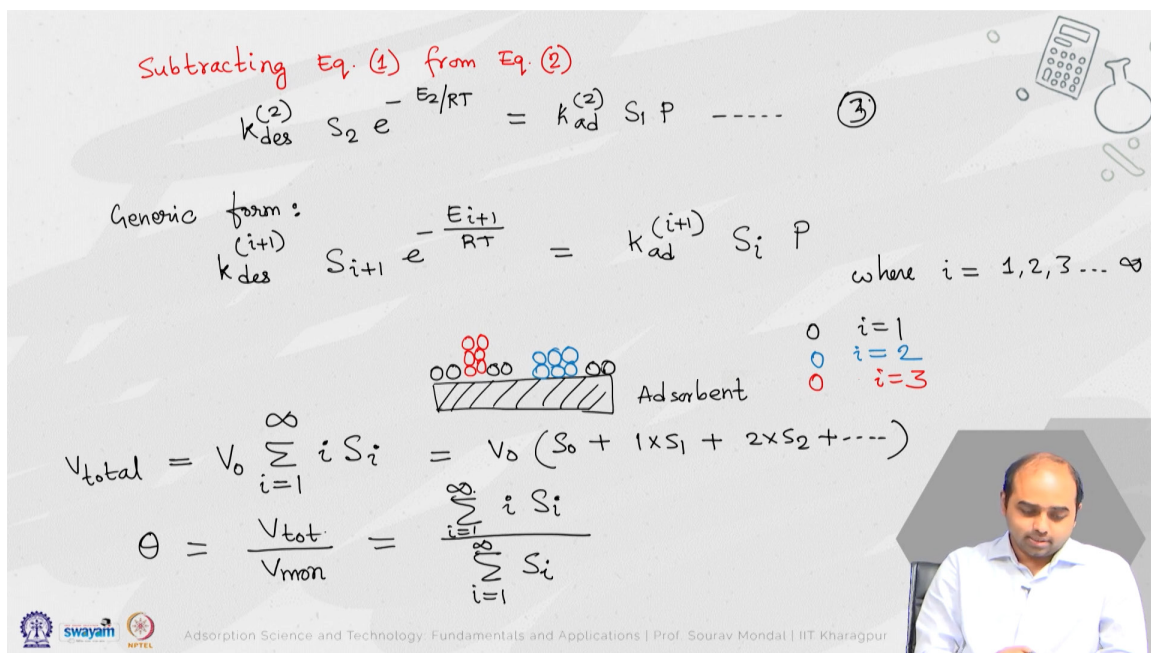 Subtracting Eq. (1) from Eq. (2)
k_des^(2) S_2 e^(-E2/RT) = k_ad^(2) S_1 P ----- (3)
Generic form:
k_des^(i+1) S_{i+1} e^(-E_{i+1}/RT) = k_ad^(i+1) S_i P
where i = 1,2,3 ... ∞
o i=1
o i=2
o i=3
Adsorbent
V_total = V_o ∑_{i=1}^{∞} i S_i = V_o (S_o + 1×S_1 + 2×S_2 + ----)
θ = V_tot. / V_mon = ∑_{i=1}^{∞} i S_i / ∑_{i=1}^{∞} S_i
swayam NPTEL Adsorption Science and Technology: Fundamentals and Applications | Prof. Sourav Mondal | IIT Kharagpur